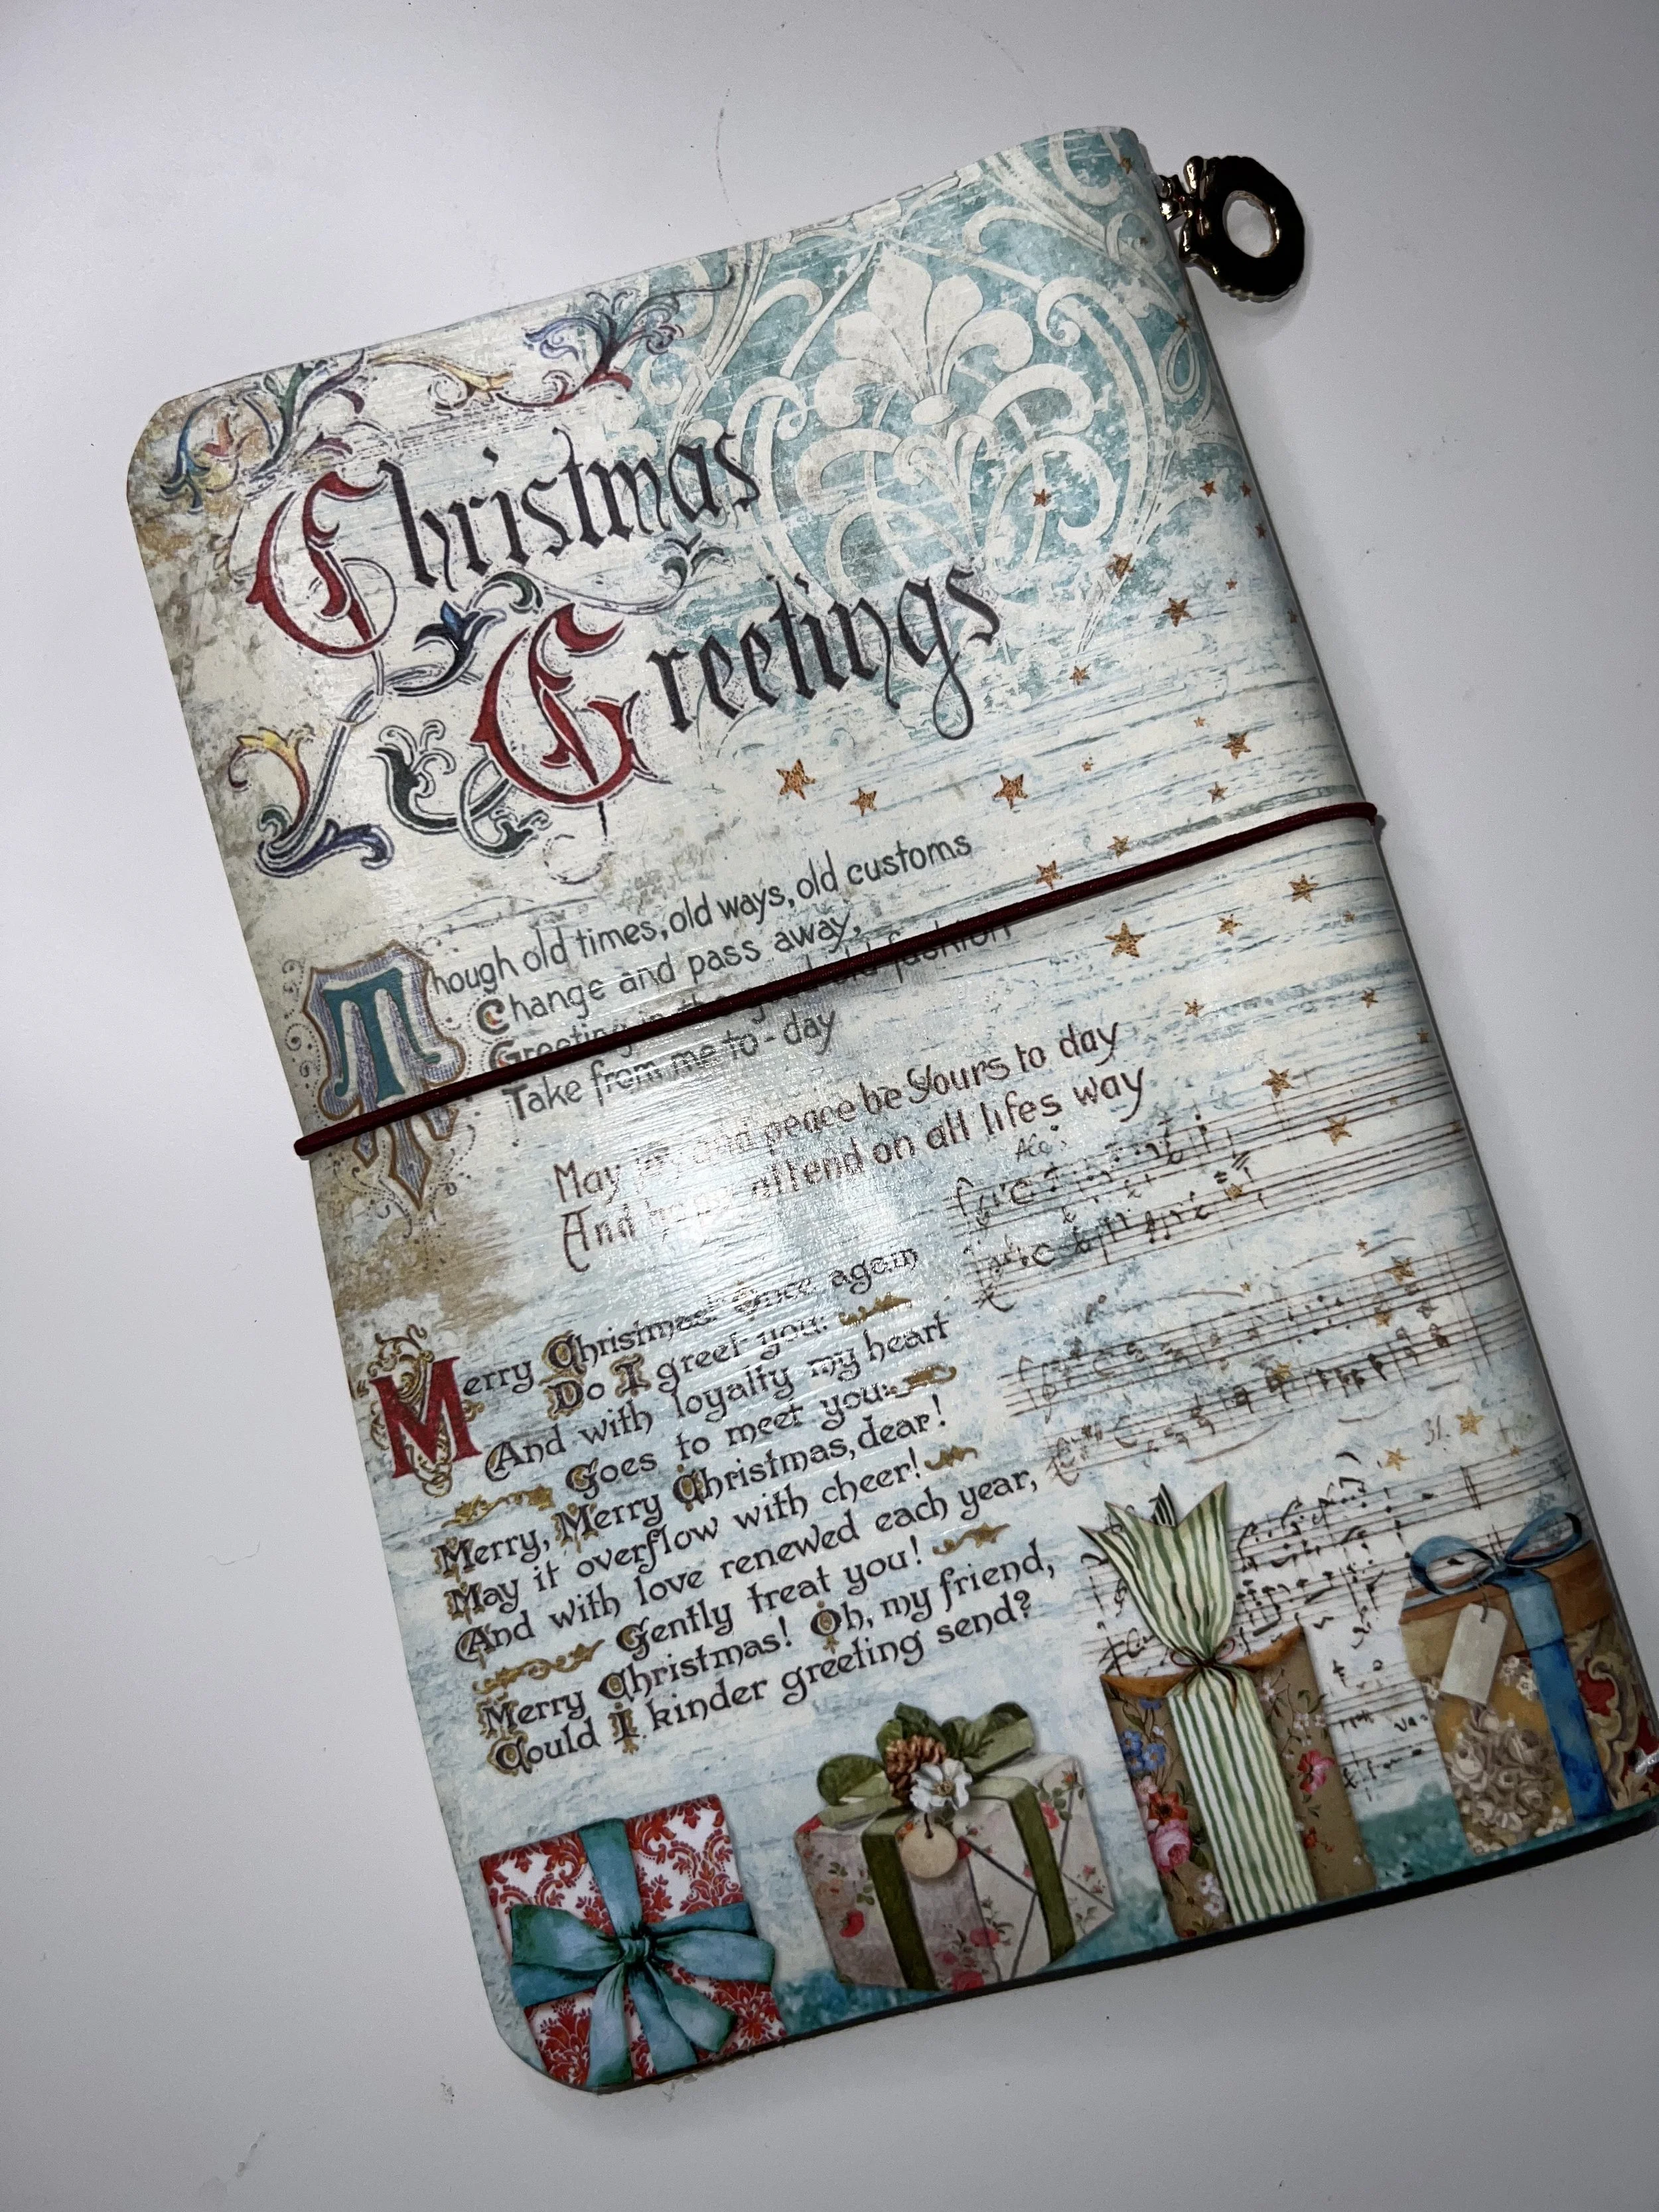 Christmas
Greetings
Though old times, old ways, old customs
Change and pass away,
Greeting in the good old fashion
Take from me to-day
May joy and peace be Yours to day
And hope attend on all lifes way
Merry Christmas! Once again
Do I greet you:
And with loyalty my heart
Goes to meet you:
Merry, Merry Christmas, dear!
May it overflow with cheer!
And with love renewed each year,
Gently treat you!
Merry Christmas! Oh, my friend,
Could I kinder greeting send?
31.